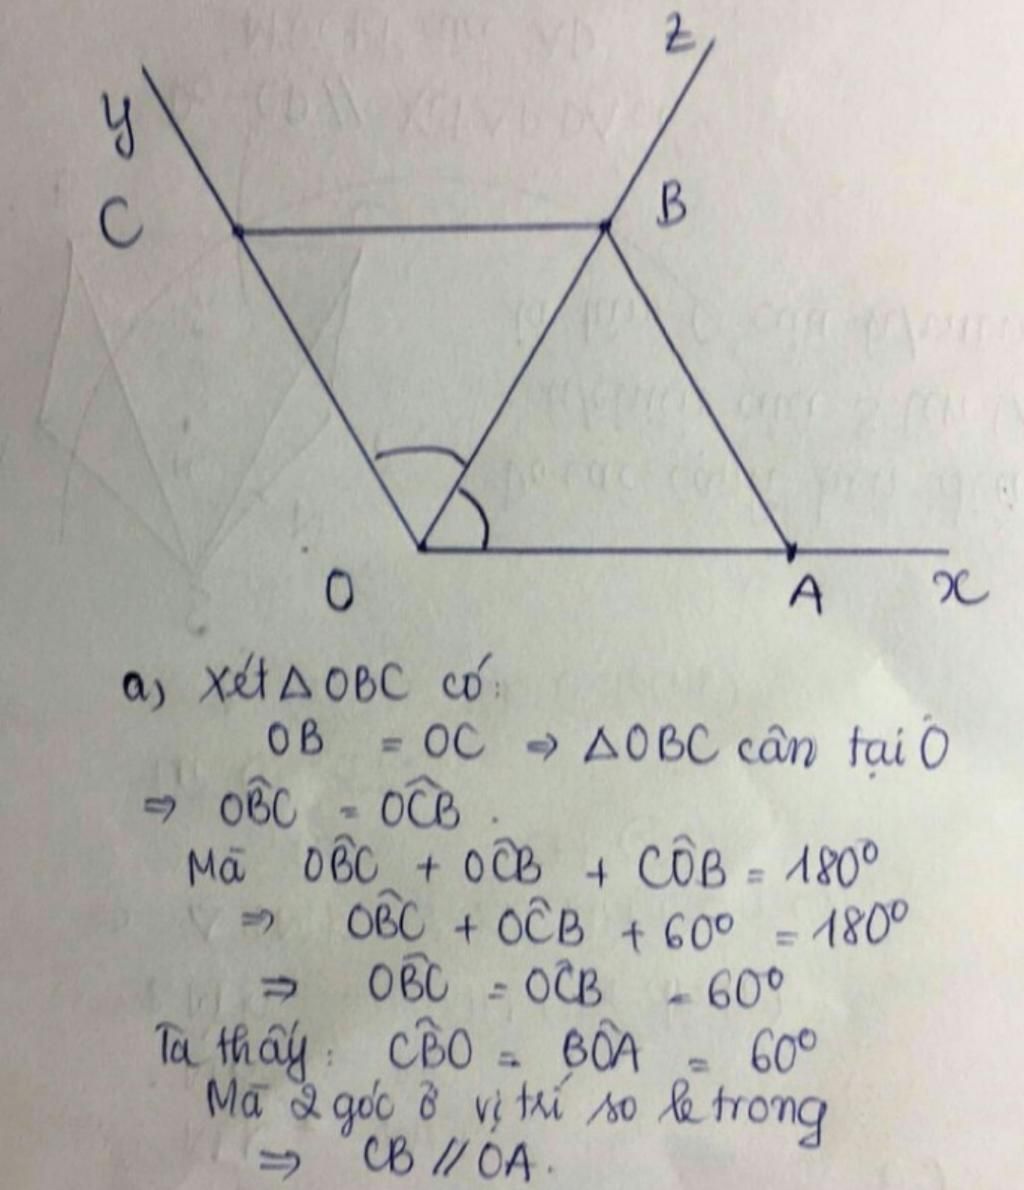 z
y
C
B
O
A
x
a, Xét △OBC có:
OB = OC ⇒ △OBC cân tại O
⇒ OB̂C = OĈB.
Mã OB̂C + OĈB + CÔB = 180⁰
⇒ OB̂C + OĈB + 60⁰ = 180⁰
⇒ OB̂C = OĈB = 60⁰
Ta thấy: CB̂O = BÔA = 60⁰
Mã 2 góc ở vị trí so le trong
⇒ CB // OA.